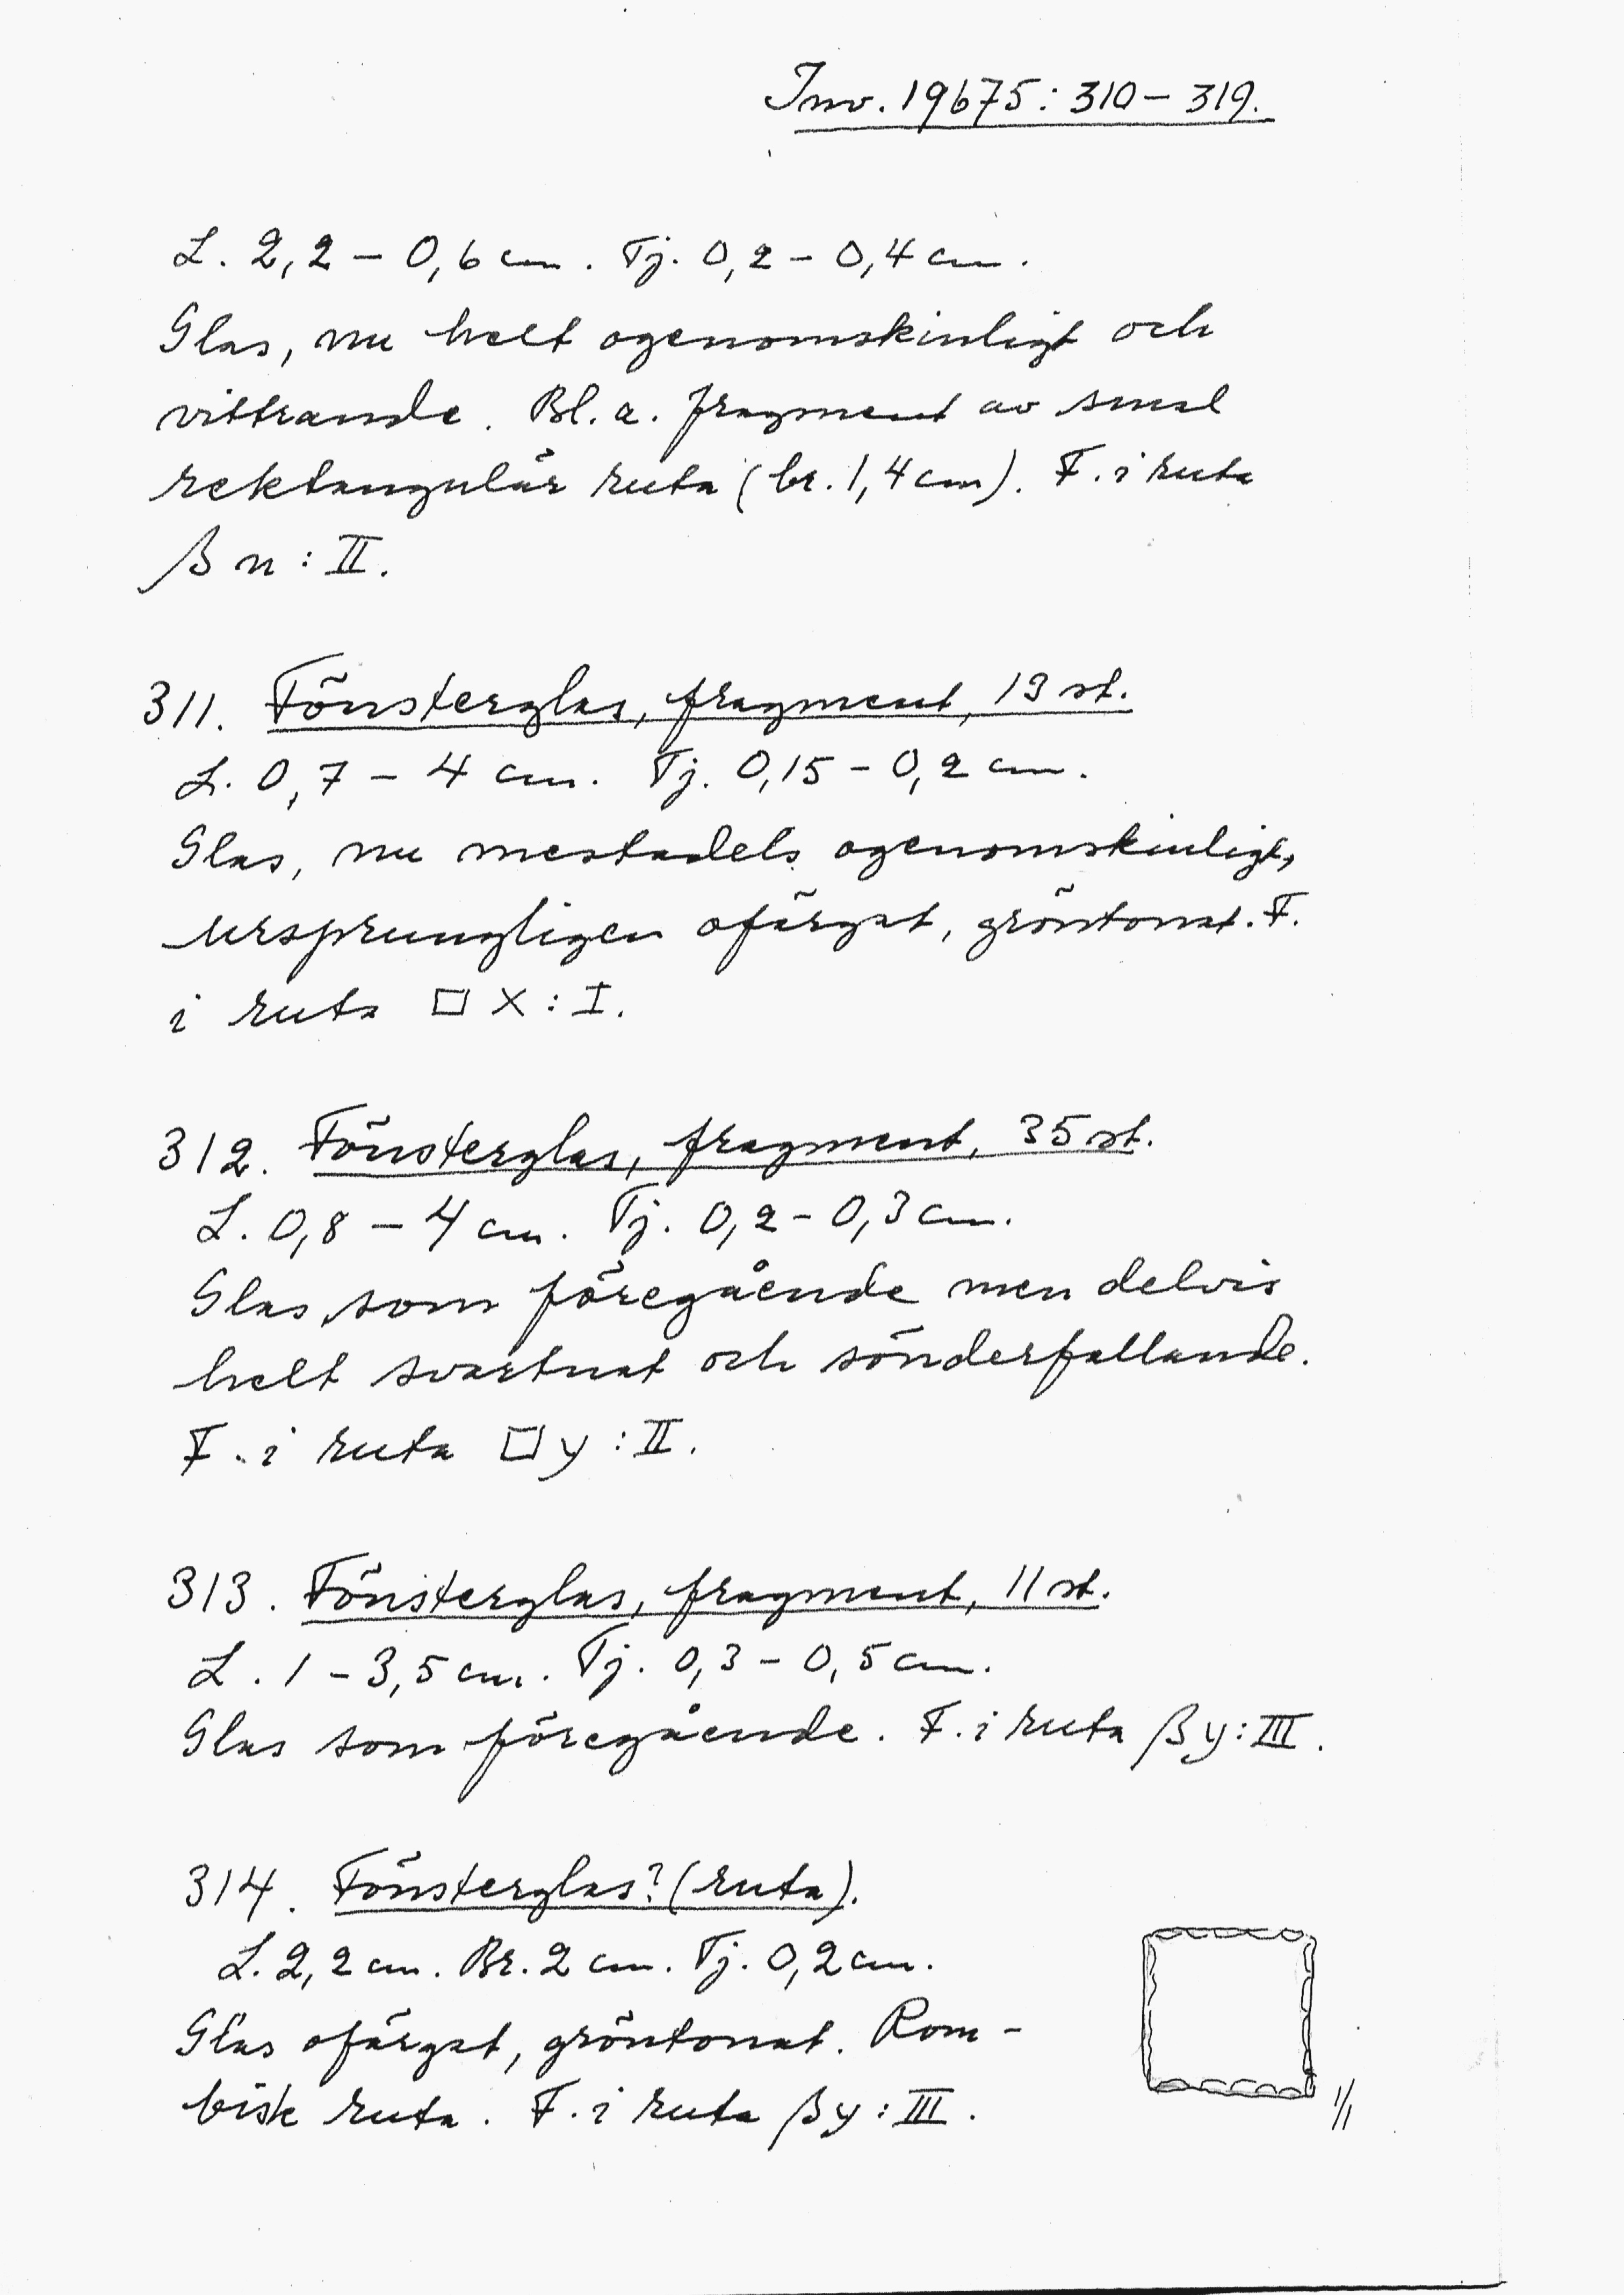 Inv. 19675: 310 – 319.
L. 2,2 – 0,6 cm. Tj. 0,2 – 0,4 cm.
Glas, nu helt ogenomskinligt och
vittrande. Bl. a. fragment av smal
rektangulär ruta (br. 1,4 cm). F. i ruta
β n : II.
311. Fönsterglas, fragment, 13 st.
L. 0,7 – 4 cm. Tj. 0,15 – 0,2 cm.
Glas, nu mestadels ogenomskinligt,
ursprungligen ofärgat, gröntonat. F.
i ruta □ X : I.
312. Fönsterglas, fragment, 35 st.
L. 0,8 – 4 cm. Tj. 0,2 – 0,3 cm.
Glas som föregående men delvis
helt svartnat och sönderfallande.
F. i ruta □ y : II.
313. Fönsterglas, fragment, 11 st.
L. 1 – 3,5 cm. Tj. 0,3 – 0,5 cm.
Glas som föregående. F. i ruta β y : III.
314. Fönsterglas? (ruta).
L. 2,2 cm. Br. 2 cm. Tj. 0,2 cm.
Glas ofärgat, gröntonat. Rom-
bisk ruta. F. i ruta β y : III.
1/1